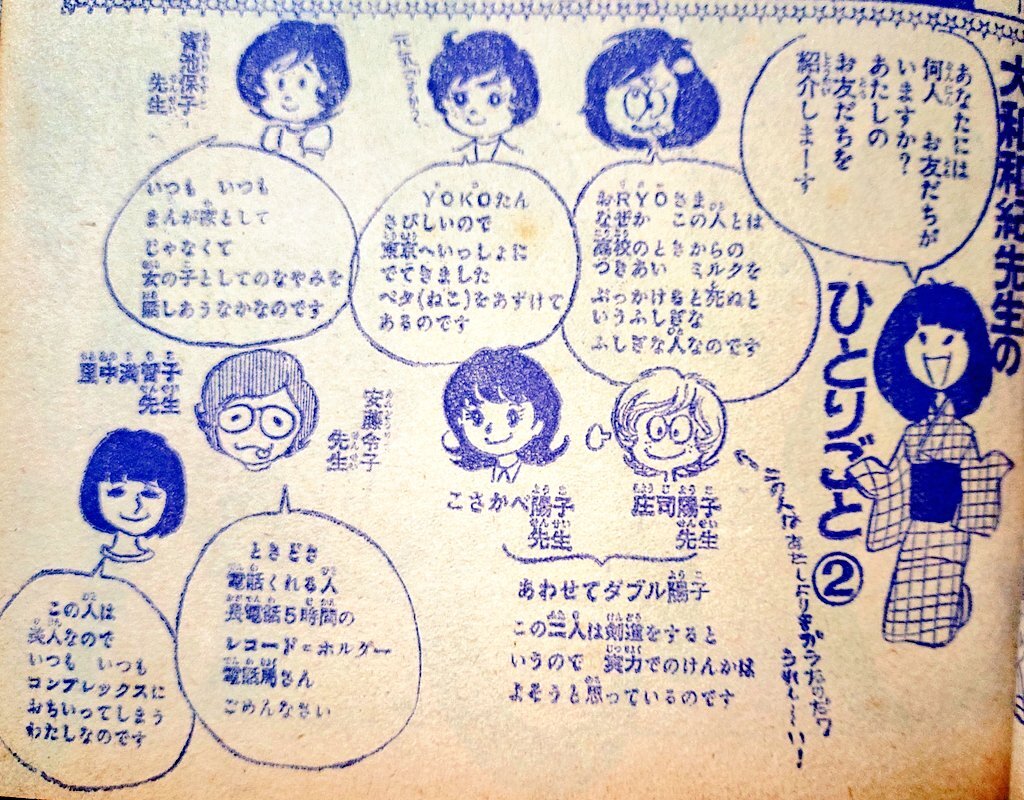 大和和紀先生の
ひとりごと②
あなたには
何人　お友だちが
いますか？
あたしの
お友だちを
紹介しまーす
おRYOさま
なぜか　この人とは
高校のときからの
つきあい　ミルクを
ぶっかけると死ぬと
いうふしぎな
ふしぎな人なのです
元気ですか
YOKOたん
さびしいので
東京へいっしょに
でてきました
ペタ(ねこ)をあずけて
あるのです
菊池保子
先生
いつも　いつも
まんが家として
じゃなくて
女の子としてのなやみを
話しあうなかなのです
この人はあたしよりもガラたのだワ
うれしーい！
庄司陽子
先生
こさかべ陽子
先生
あわせてダブル陽子
この二人は剣道をすると
いうので　実力でのけんかは
よそうと思っているのです
安藤令子
先生
ときどき
電話くれる人
長電話5時間の
レコード＝ホルダー
電話馬さん
ごめんなさい
里中満智子
先生
この人は
美人なので
いつも　いつも
コンプレックスに
おちいってしまう
わたしなのです